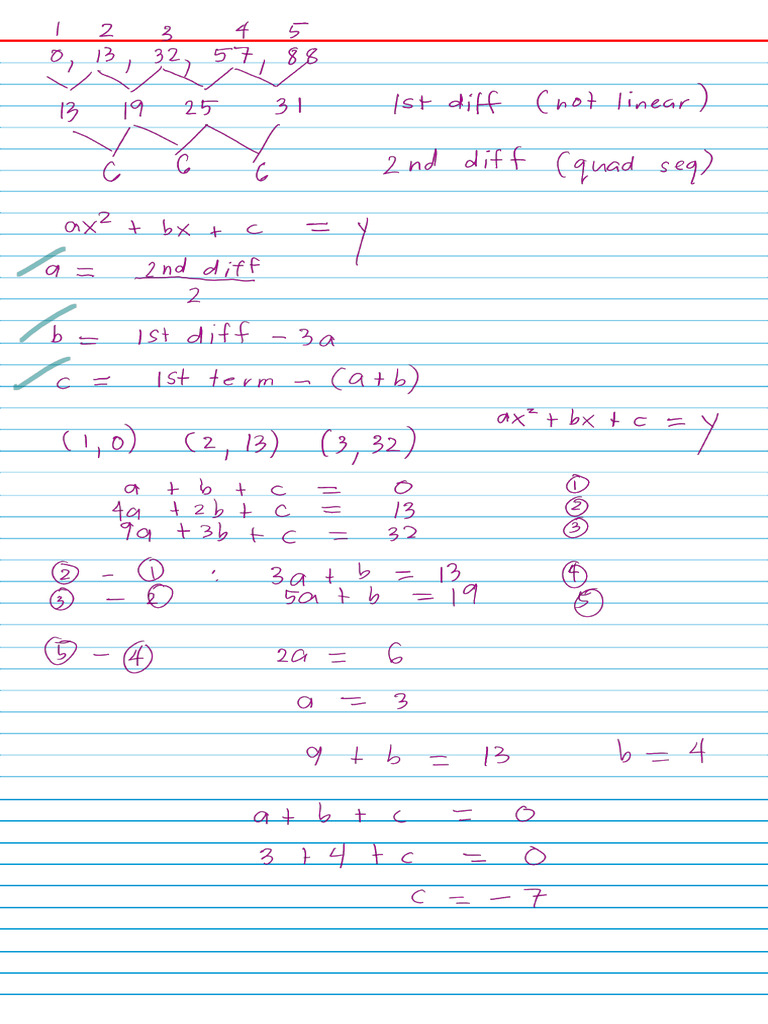 1 2 3 4 5
0, 13, 32, 57, 88
13 19 25 31 1st diff (not linear)
6 6 6 2nd diff (quad seq)
ax² + bx + c = y
a = 2nd diff / 2
b = 1st diff - 3a
c = 1st term - (a+b)
ax² + bx + c = y
(1, 0) (2, 13) (3, 32)
a + b + c = 0 ①
4a + 2b + c = 13 ②
9a + 3b + c = 32 ③
② - ① : 3a + b = 13 ④
③ - ② 5a + b = 19 ⑤
⑤ - ④ 2a = 6
a = 3
9 + b = 13 b = 4
a + b + c = 0
3 + 4 + c = 0
c = - 7